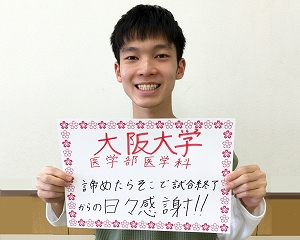 大阪大学
医学部医学科
諦めたらそこで試合終了
からの日々感謝!!